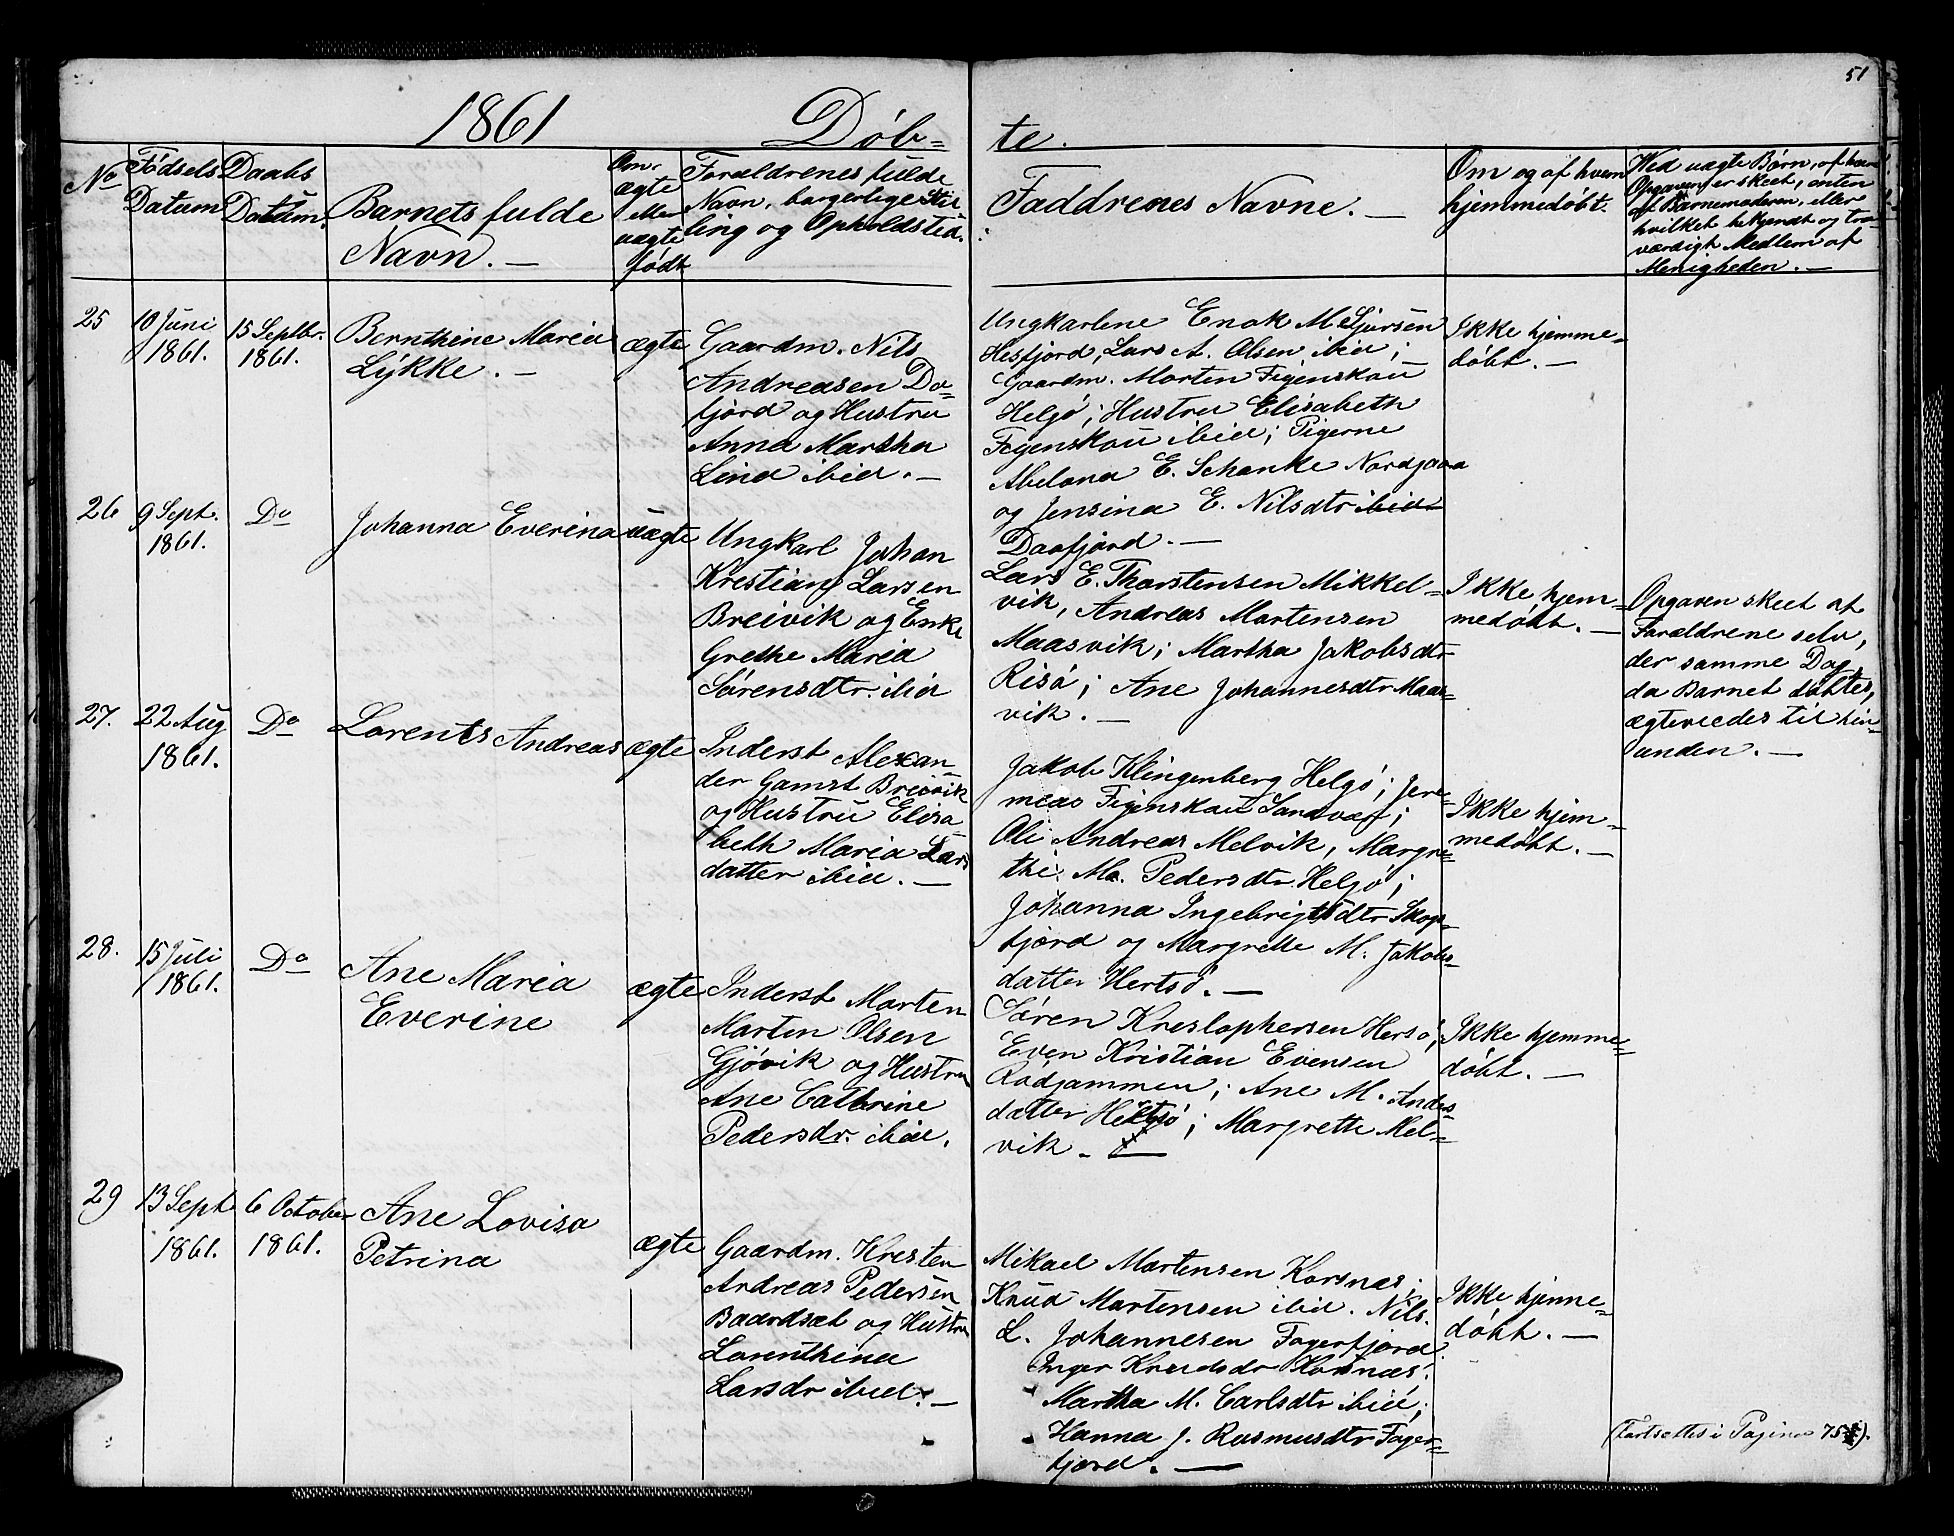 51
1861 Døb=
te.
No
Fødsels
Datum
Daabs
Datum.
Barnets fulde
Navn. —
Om
ægte
uægte
født
Forældrenes fulde
Navn, borgerlige Stil
ling og Opholdsted.
Faddrenes Navne. —
Om og af hvem
hjemmedøbt.
Ved uægte Børn, af hvem
Opgaven er skeet, enten
af Barnemoderen, eller
hvilket bekjendt og tro
værdigt Medlem af
Menigheden. —
25
10 Juni
1861.
15 Septbr.
1861.
Bernthine Maria
Lykke. —
ægte
Gaardm. Nils
Andreasen Da=
fjord og Hustru
Anna Martha
Lind ibid. —
Ungkarlene Enok M. Sjursen
Hesfjord, Lars A. Olsen ibid;
Gaardm. Morten Figenskou
Helgø; Hustru Elisabeth
Fegenskou ibid; Pigerne
Abelona E. Schanke Nordgaa
og Jensina E. Nilsdtr ibid
Daafjord. —
Ikke hjemme=
døbt. —
26
9 Sept.
1861.
Do
Johanna Everina
uægte
Ungkarl Johan
Krestian Larsen
Breivik og Enke
Grethe Maria
Sørensdtr. ibid
Lars E. Thorstensen Mikkel=
vik, Andreas Martensen
Maasvik; Martha Jakobsdtr
Risø; Ane Johannesdtr Maas=
vik. —
Ikke hjem=
medøbt. —
Opgaven skeet af
Forældrene selv,
der samme Dag,
da Barnet døbtes,
ægteviedes til hin=
anden. —
27.
22 Aug
1861.
Do
Lorents Andreas
ægte
Inderst Alexan=
der Gamst Breivik
og Hustru Elisa
beth Maria Lars
datter ibid. —
Jakob Klingenberg Helgø; Jere=
mias Figenskou Sandvær;
Ole Andreas Melvik, Margre=
the. Ma. Pedersdtr Helgø;
Johanna Ingebrigtsdtr Skogs=
fjord og Margrette M. Jakobs=
datter Hertsø. —
Ikke hjem=
medøbt. —
28.
15 Juli
1861.
Do
Ane Maria
Everine
ægte
Inderst Morten
Martin Olsen
Gjøvik og Hustru
Ane Cathrine
Pedersdr. ibid.
Søren Krestophersen Hersø,
Even Kristian Evensen
Rødgammen; Ane M. Anders=
datter Hertsø; Margrette Mel=
vik. —
Ikke hjemme=
døbt. —
29
13 Sept
1861.
6 October
1861.
Ane Lovisa
Petrina
ægte
Gaardm. Kresten
Andreas Pedersen
Baardset og Hustru
Lorenthina
Larsdr ibid. —
Mikael Martensen Korsnæs;
Knud Martensen ibid. Nils.
L. Johannesen Fagerfjord
Inger Knudsdr Korsnæs;
Martha M. Carlsdtr ibid;
Hanna J. Rasmusdtr Fager=
fjord. —
Ikke hjemme=
døbt. —
(Fortsettes i Pagina 75).